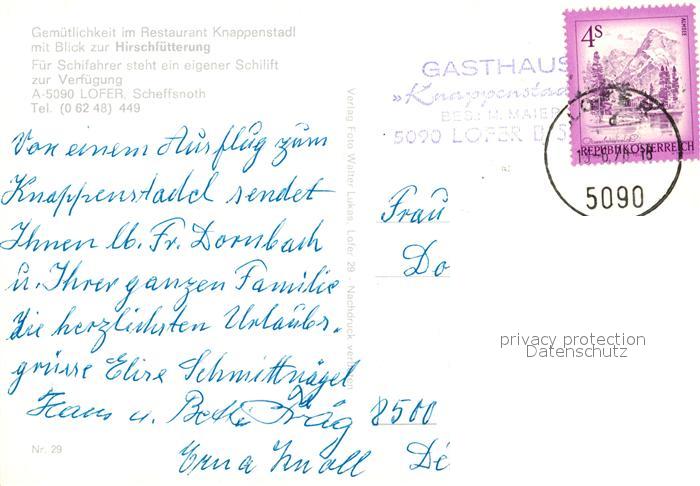 Gemütlichkeit im Restaurant Knappenstadl
mit Blick zur Hirschfütterung
Für Schifahrer steht ein eigener Schilift
zur Verfügung
A-5090 LOFER, Scheffsnoth
Tel. (0 62 48) 449
Von einem Ausflug zum
Knappenstadel sendet
Ihnen lb. Fr. Dornbach
u. Ihrer ganzen Familie
die herzlichsten Urlaubs-
grüsse Elise Schmittnägel
Hans u.
Erna Knoll
Nr. 29
Verlag Foto Walter Lukas, Lofer 29, Nachdruck
GASTHAUS
„Knappenstad
BES.: M. MAIER
5090 LOFER
4S
REPUBLIK ÖSTERREICH
LOFER
5090
Frau
Do
8500
privacy protection
Datenschutz